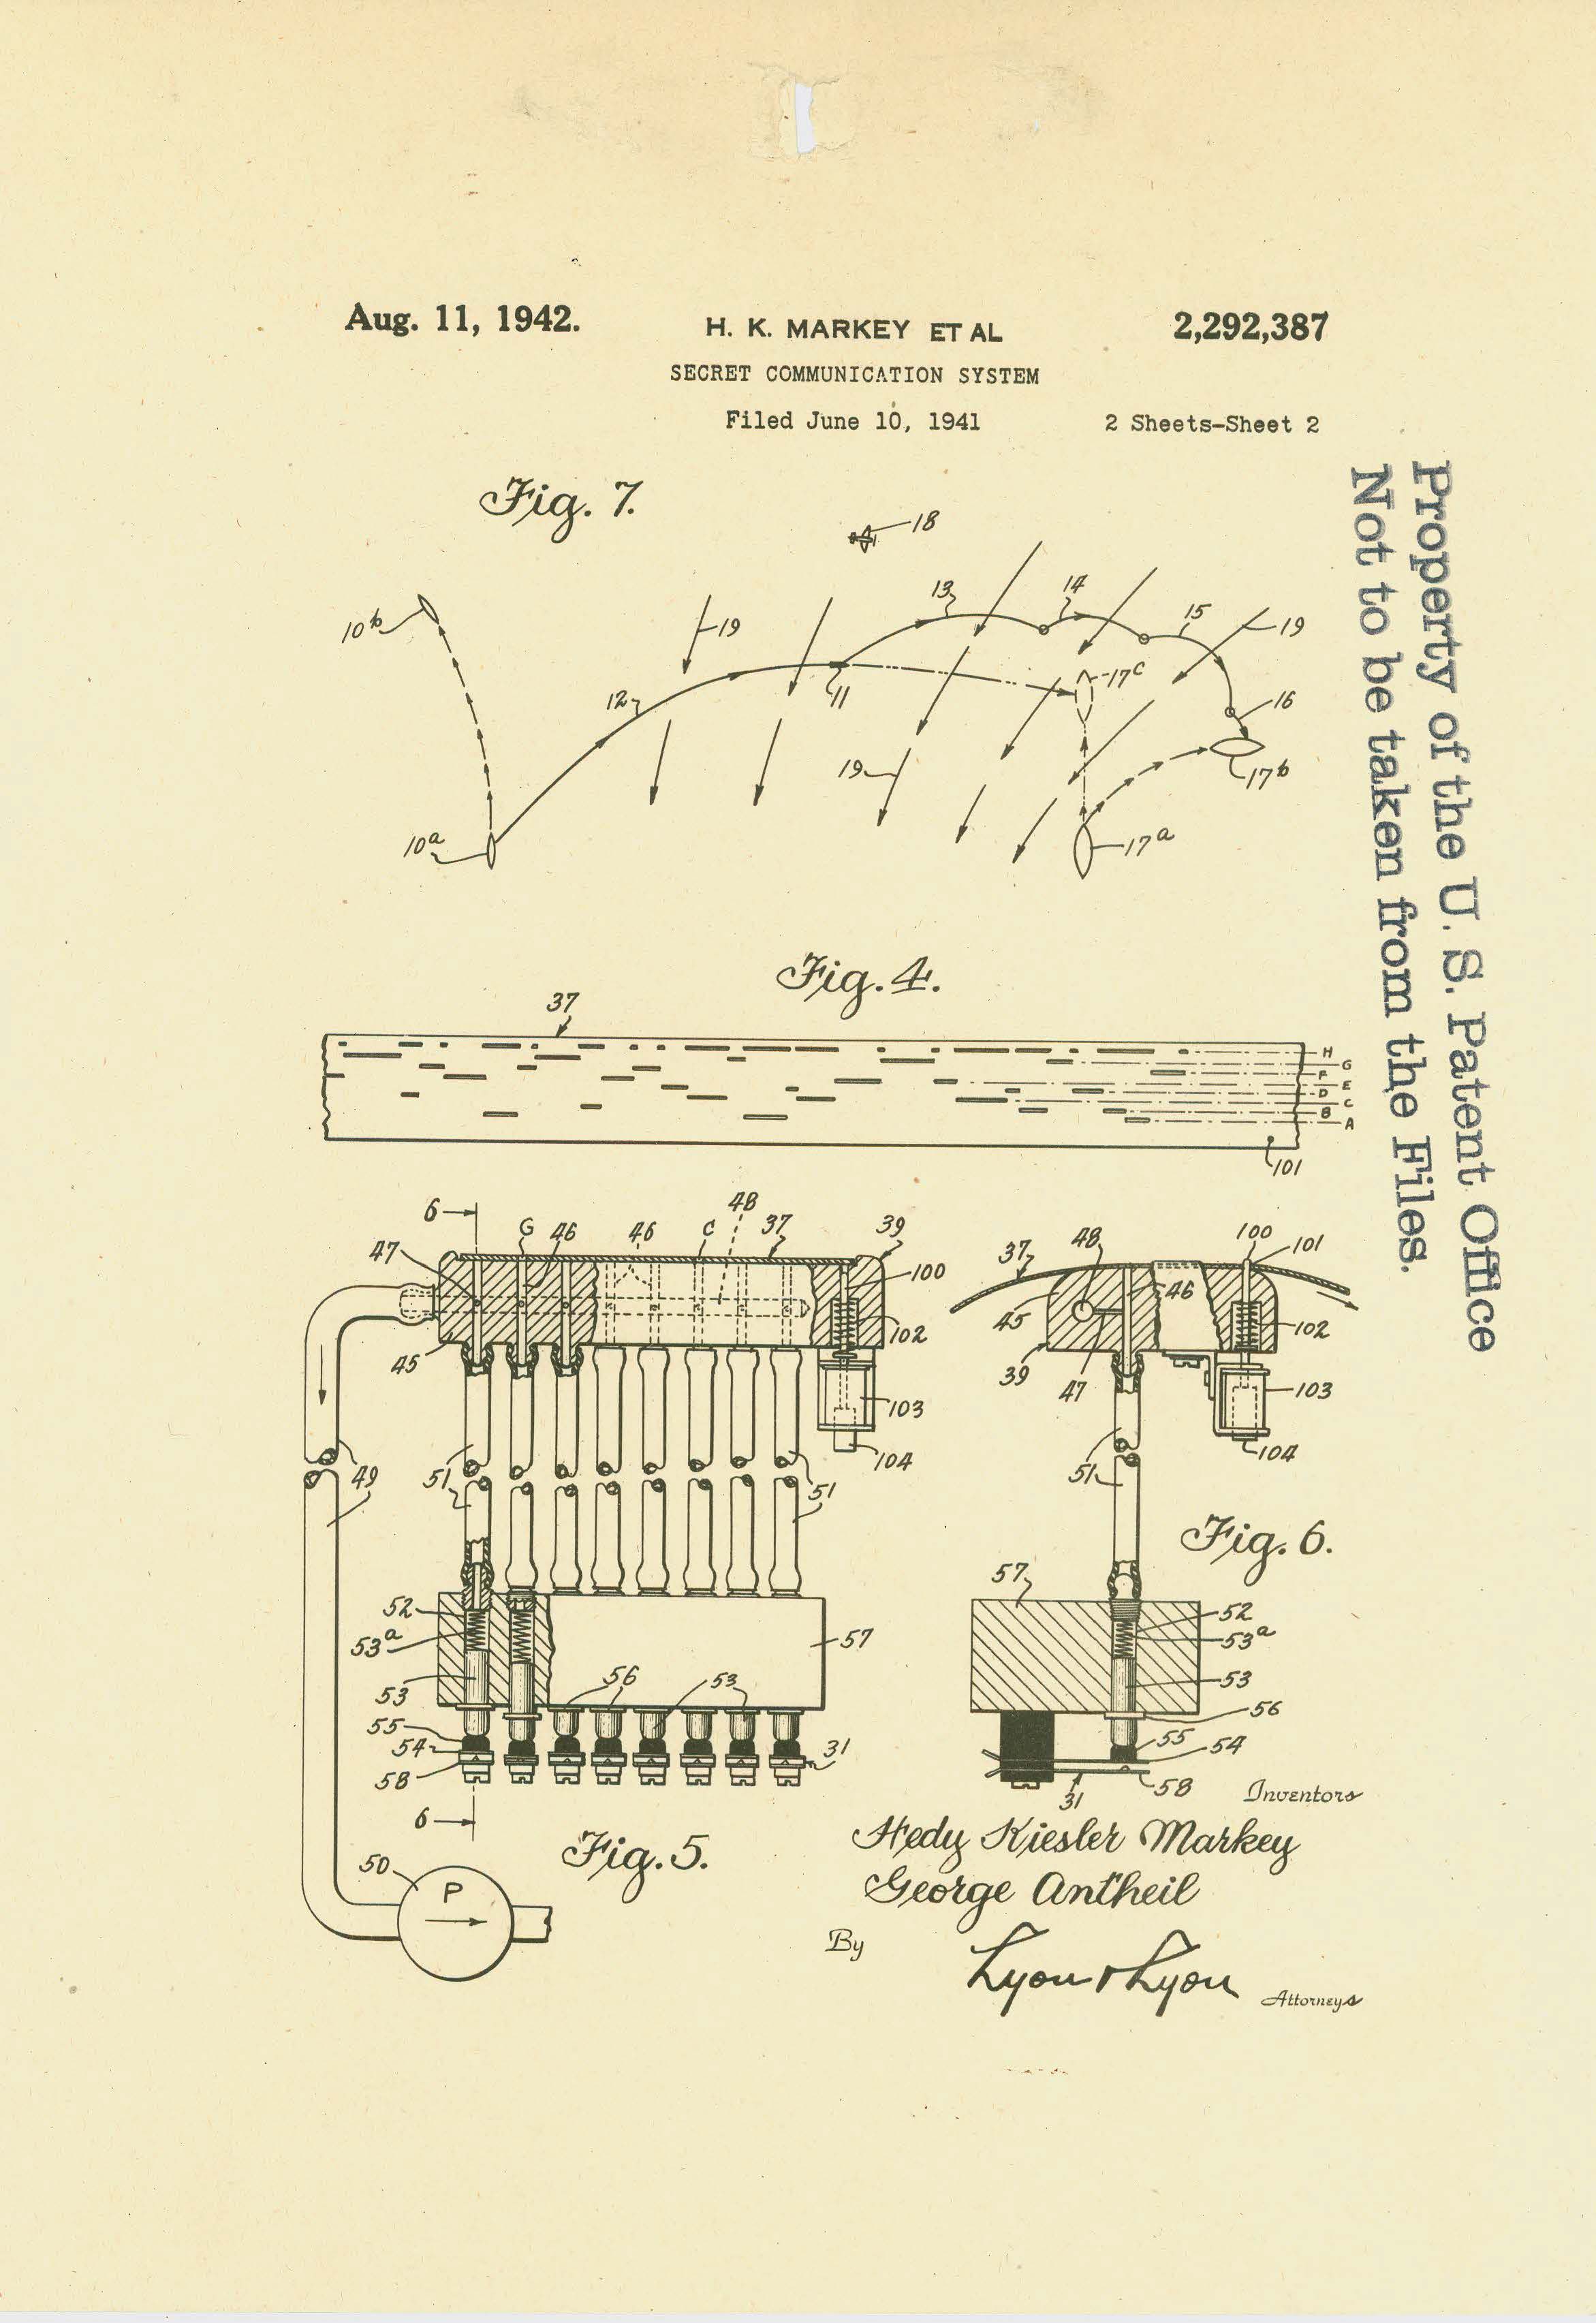 Aug. 11, 1942.
H. K. MARKEY ET AL
2,292,387
SECRET COMMUNICATION SYSTEM
Filed June 10, 1941
2 Sheets-Sheet 2
Property of the U. S. Patent Office
Not to be taken from the Files.
Fig. 7.
18
10b
19
13
14
15
19
12
11
17c
16
19
17b
10a
17a
Fig. 4.
37
H
G
F
E
D
C
B
A
101
6
47
G
46
46
C
48
37
39
100
102
45
103
104
49
51
51
52
53a
57
53
56
53
55
54
58
31
6
50
P
Fig. 5.
37
48
100
101
46
45
102
39
47
103
104
51
Fig. 6.
57
52
53a
53
56
55
54
58
31
Inventors
Hedy Kiesler Markey
George Antheil
By
Lyon & Lyon
Attorneys